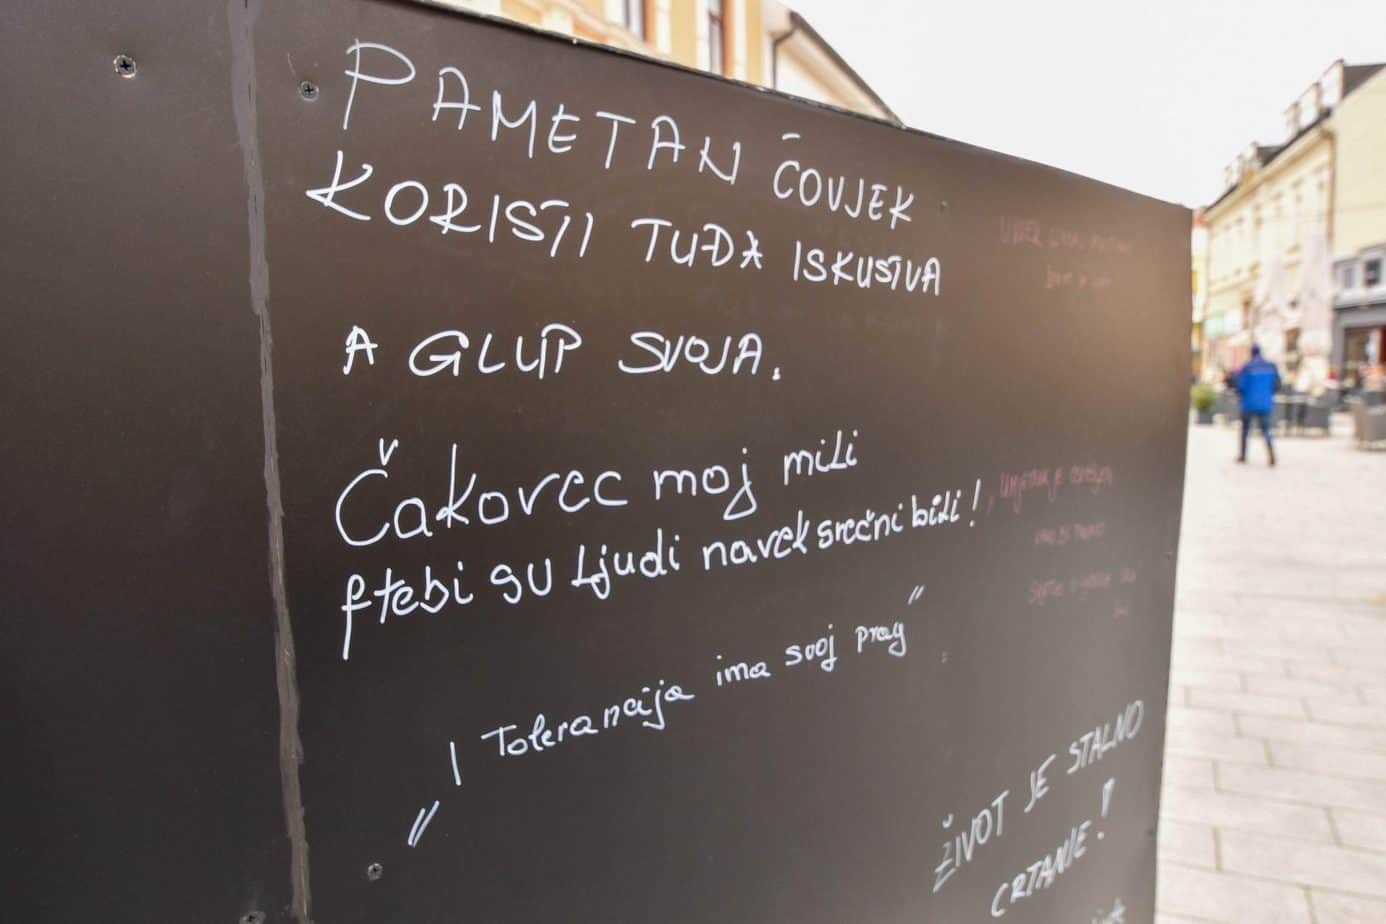 PAMETAN ČOVJEK
KORISTI TUĐA ISKUSTVA
A GLUP SVOJA.
Čakovec moj mili
f tebi su ljudi navek srečni bili!
"I Tolerancija ima svoj prag"
ŽIVOT JE STALNO
CRTANJE!